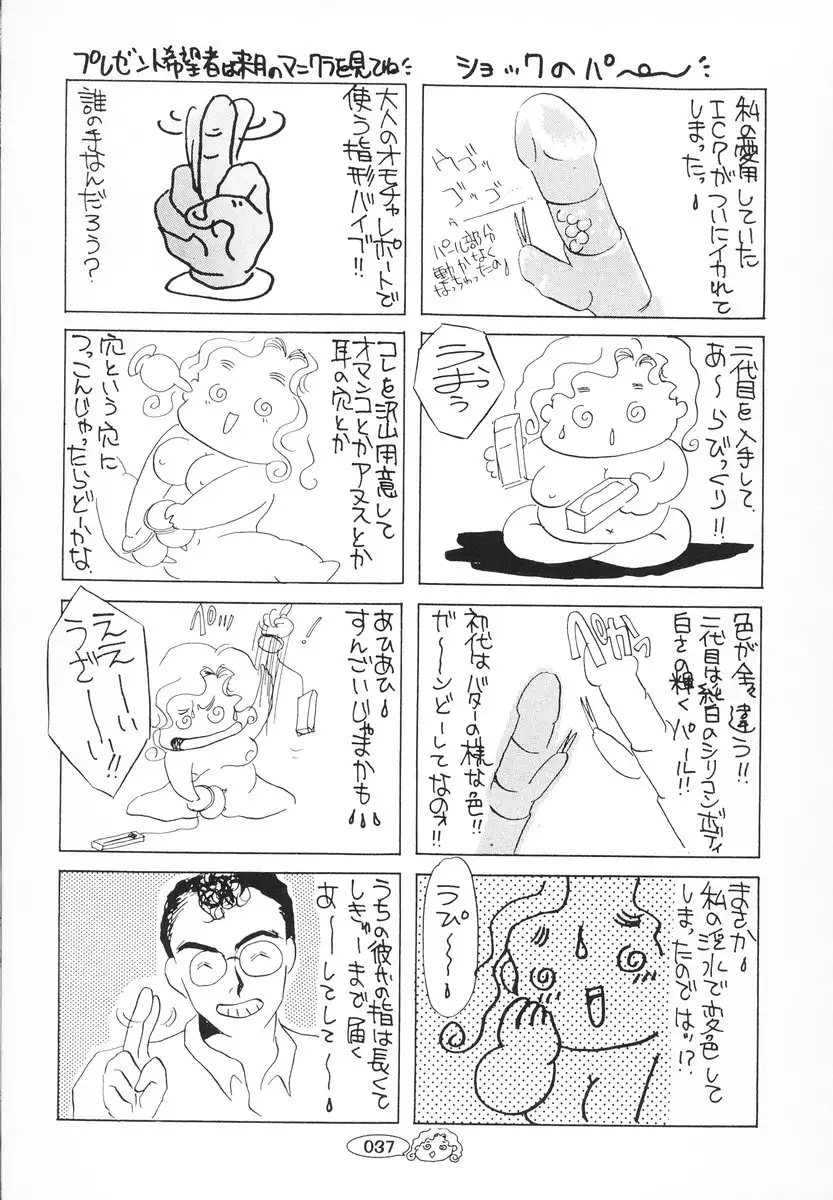 ショックのパ〜〜
私の愛用していた
ICPがついにイカれて
しまったっ
ウゴッ
ゴッゴッ
パール部分
動かなく
なっちゃったの
二代目を入手して
あ〜らびっくり!!
うおぅ
色が全々違う!!
二代目は純白のシリコンボディ
白さの輝くパール!!
ペかっ
初代はバターの様な色!!
が〜〜ンどーしてなのォ!!
まさか
私の淫水で変色して
しまったのでは!?
うぴ〜〜
プレゼント希望者は来月のマニクラを見てね
大人のオモチャレポートで
使う指形バイブ!!
誰の手なんだろう?
コレを沢山用意して
オマンコとかアヌスとか
耳の穴とか
穴という穴に
つっこんじゃったらどーかな
あひあひ
すんごいじゃまかも
ペロ
ええーい
うざーーい!!
うちの彼氏の指は長くて
しきゅーまで届く
あ〜〜してして〜〜
037